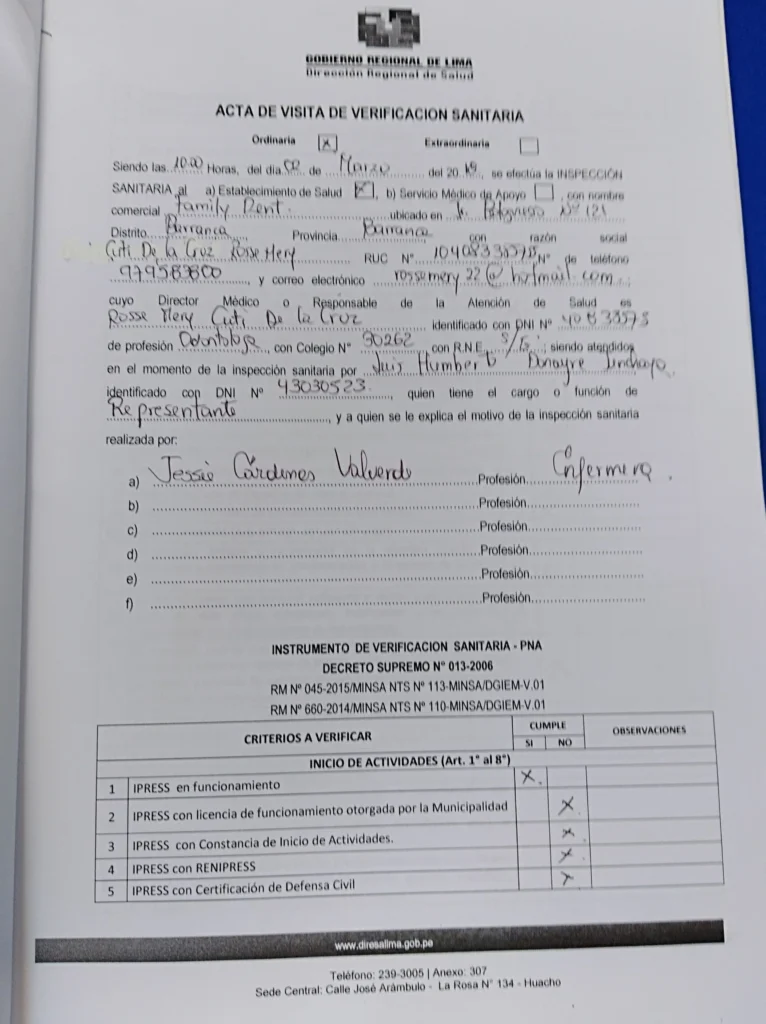 GOBIERNO REGIONAL DE LIMA
Dirección Regional de Salud
ACTA DE VISITA DE VERIFICACION SANITARIA
Ordinaria [x] Extraordinaria [ ]
Siendo las 10:00 Horas, del día 02 de Marzo del 2019, se efectúa la INSPECCIÓN
SANITARIA al a) Establecimiento de Salud [x], b) Servicio Médico de Apoyo [ ], con nombre
comercial Family Dent. ubicado en Jr. N° 121
Distrito Barranca Provincia Barranca con razón social
Cuti De la Cruz Rosse Mery RUC N° N° de teléfono
979583800, y correo electrónico rossemery22@hotmail.com,
cuyo Director Médico o Responsable de la Atención de Salud es
Rosse Mery Cuti De la Cruz identificado con DNI N° 40833573
de profesión Odontologa, con Colegio N° 30262 con R.N.E. siendo atendidos
en el momento de la inspección sanitaria por Luis Humberto Donayre
identificado con DNI N° 43030523, quien tiene el cargo o función de
Representante, y a quien se le explica el motivo de la inspección sanitaria
realizada por:
a) Jessie Cárdenas Valverde Profesión Enfermera.
b) Profesión
c) Profesión
d) Profesión
e) Profesión
f) Profesión
INSTRUMENTO DE VERIFICACION SANITARIA - PNA
DECRETO SUPREMO N° 013-2006
RM N° 045-2015/MINSA NTS N° 113-MINSA/DGIEM-V.01
RM N° 660-2014/MINSA NTS N° 110-MINSA/DGIEM-V.01
CRITERIOS A VERIFICAR CUMPLE OBSERVACIONES
SI NO
INICIO DE ACTIVIDADES (Art. 1° al 8°)
1 IPRESS en funcionamiento X
2 IPRESS con licencia de funcionamiento otorgada por la Municipalidad X
3 IPRESS con Constancia de Inicio de Actividades. X
4 IPRESS con RENIPRESS X
5 IPRESS con Certificación de Defensa Civil X
www.diresalima.gob.pe
Teléfono: 239-3005 | Anexo: 307
Sede Central: Calle José Arámbulo - La Rosa N° 134 - Huacho